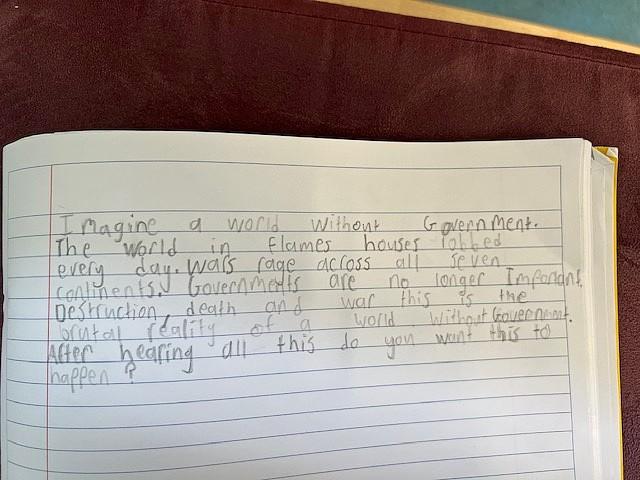 Imagine a world without Government.
The world in flames houses robbed
every day. Wars rage across all seven
continents. Governments are no longer Important.
Destruction, death and war this is the
brutal reality of a world without Government.
After hearing all this do you want this to
happen?